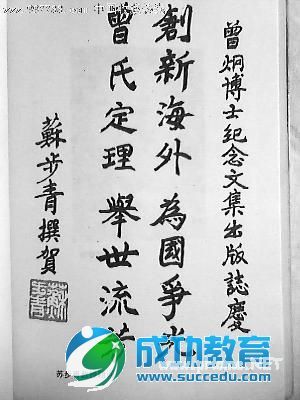 曾炯博士纪念文集出版誌慶
創新海外 為國爭光
曾氏定理 舉世流
蘇步青撰賀
苏步
成功教育
www.succedu.com